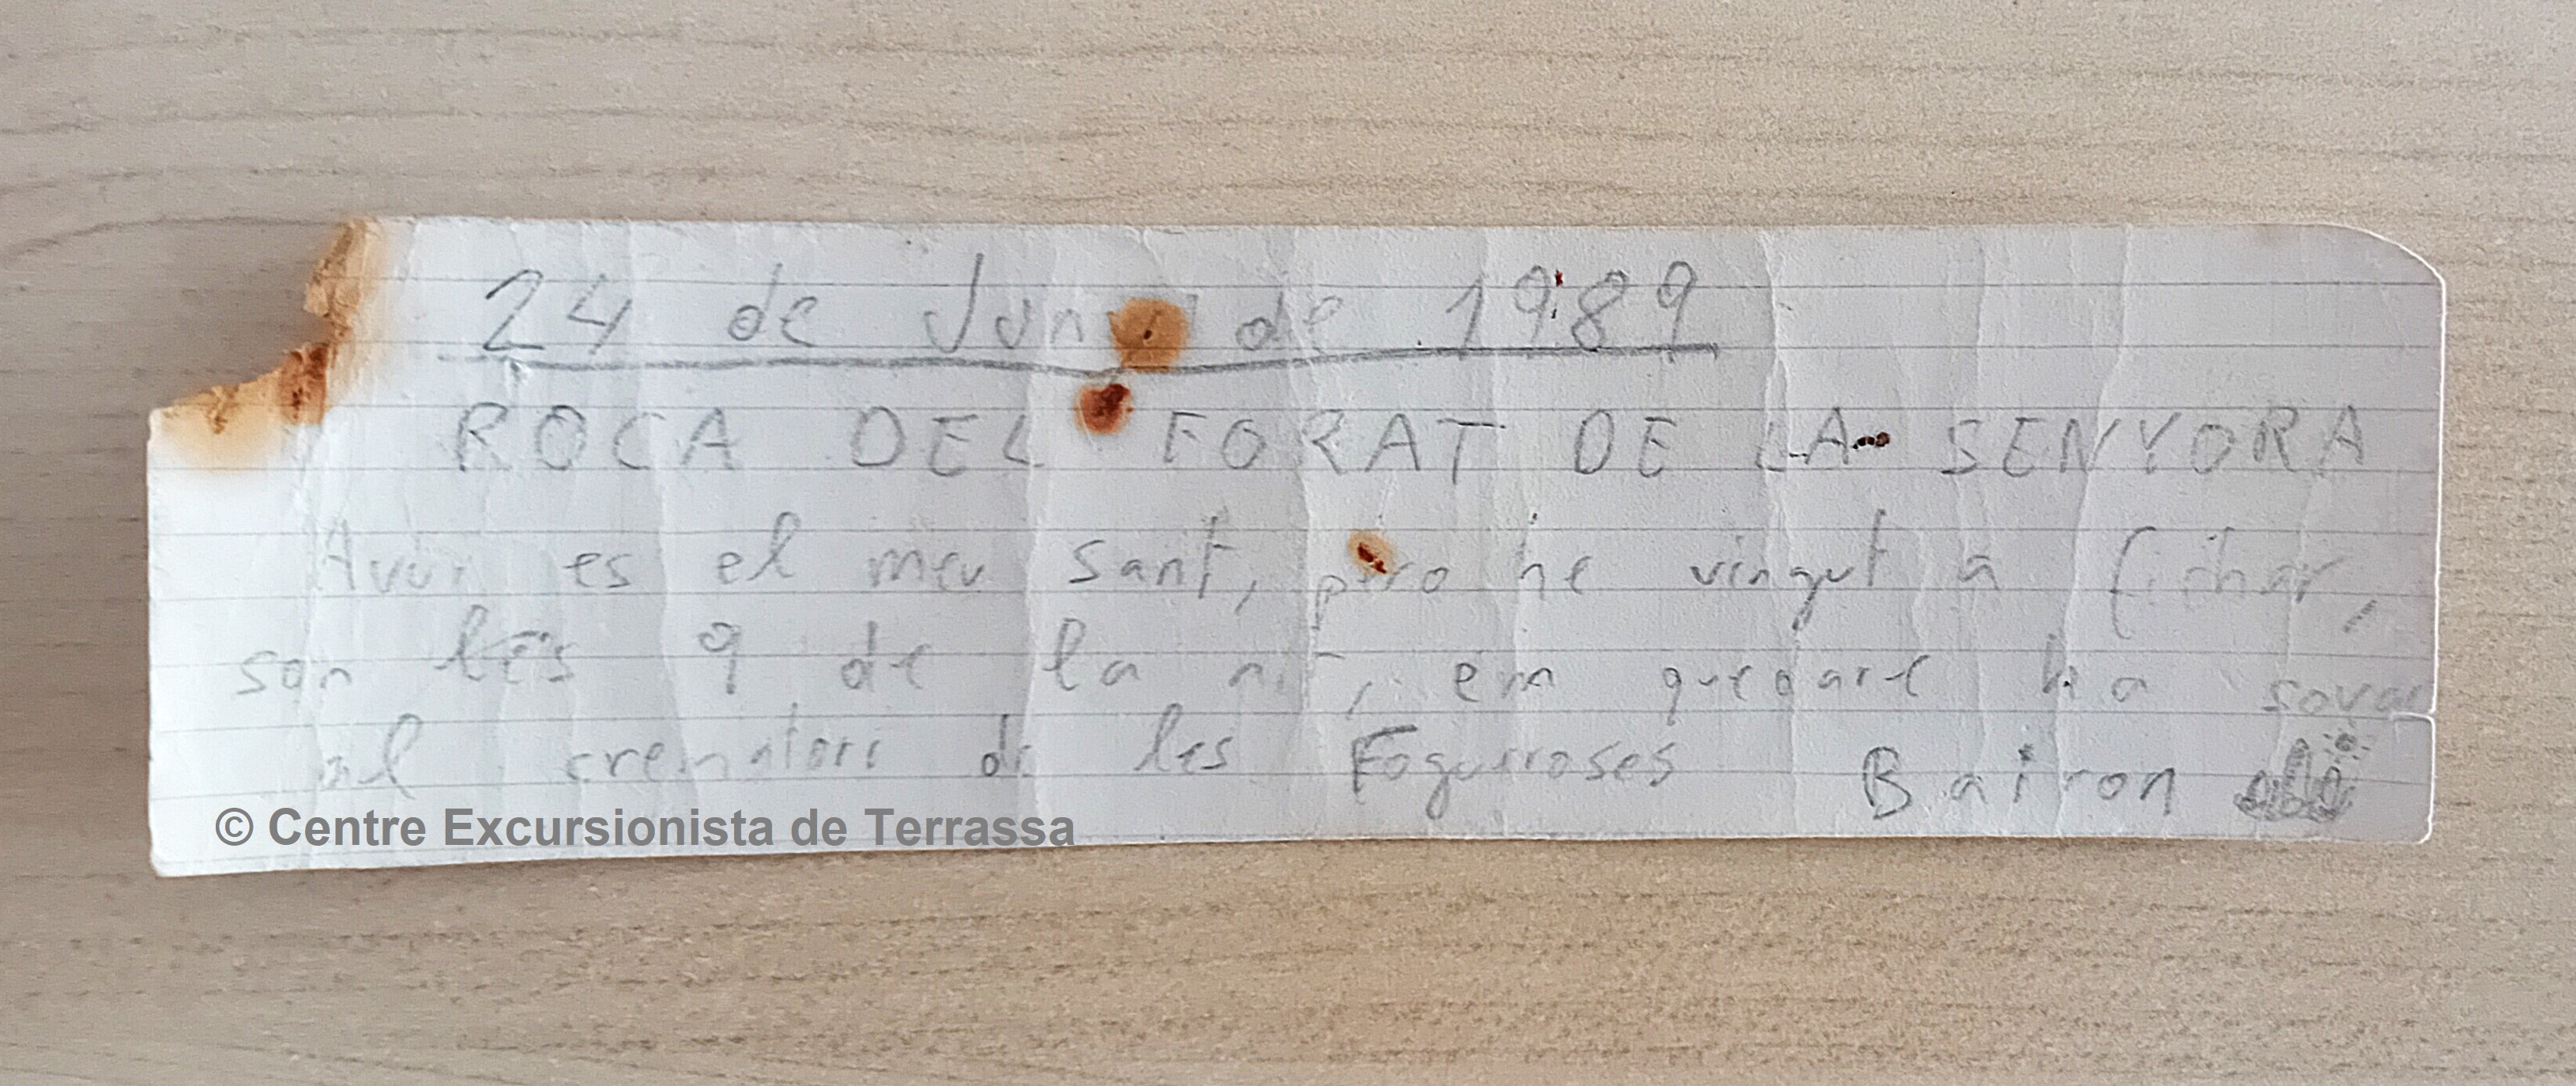 24 de Juny de 1989
ROCA DEL FORAT DE LA SENYORA
Avui es el meu sant, pero he vingut a fichar,
son les 9 de la nit, em quedare ha sovar
al crematori de les Foguerroses Bairon
© Centre Excursionista de Terrassa